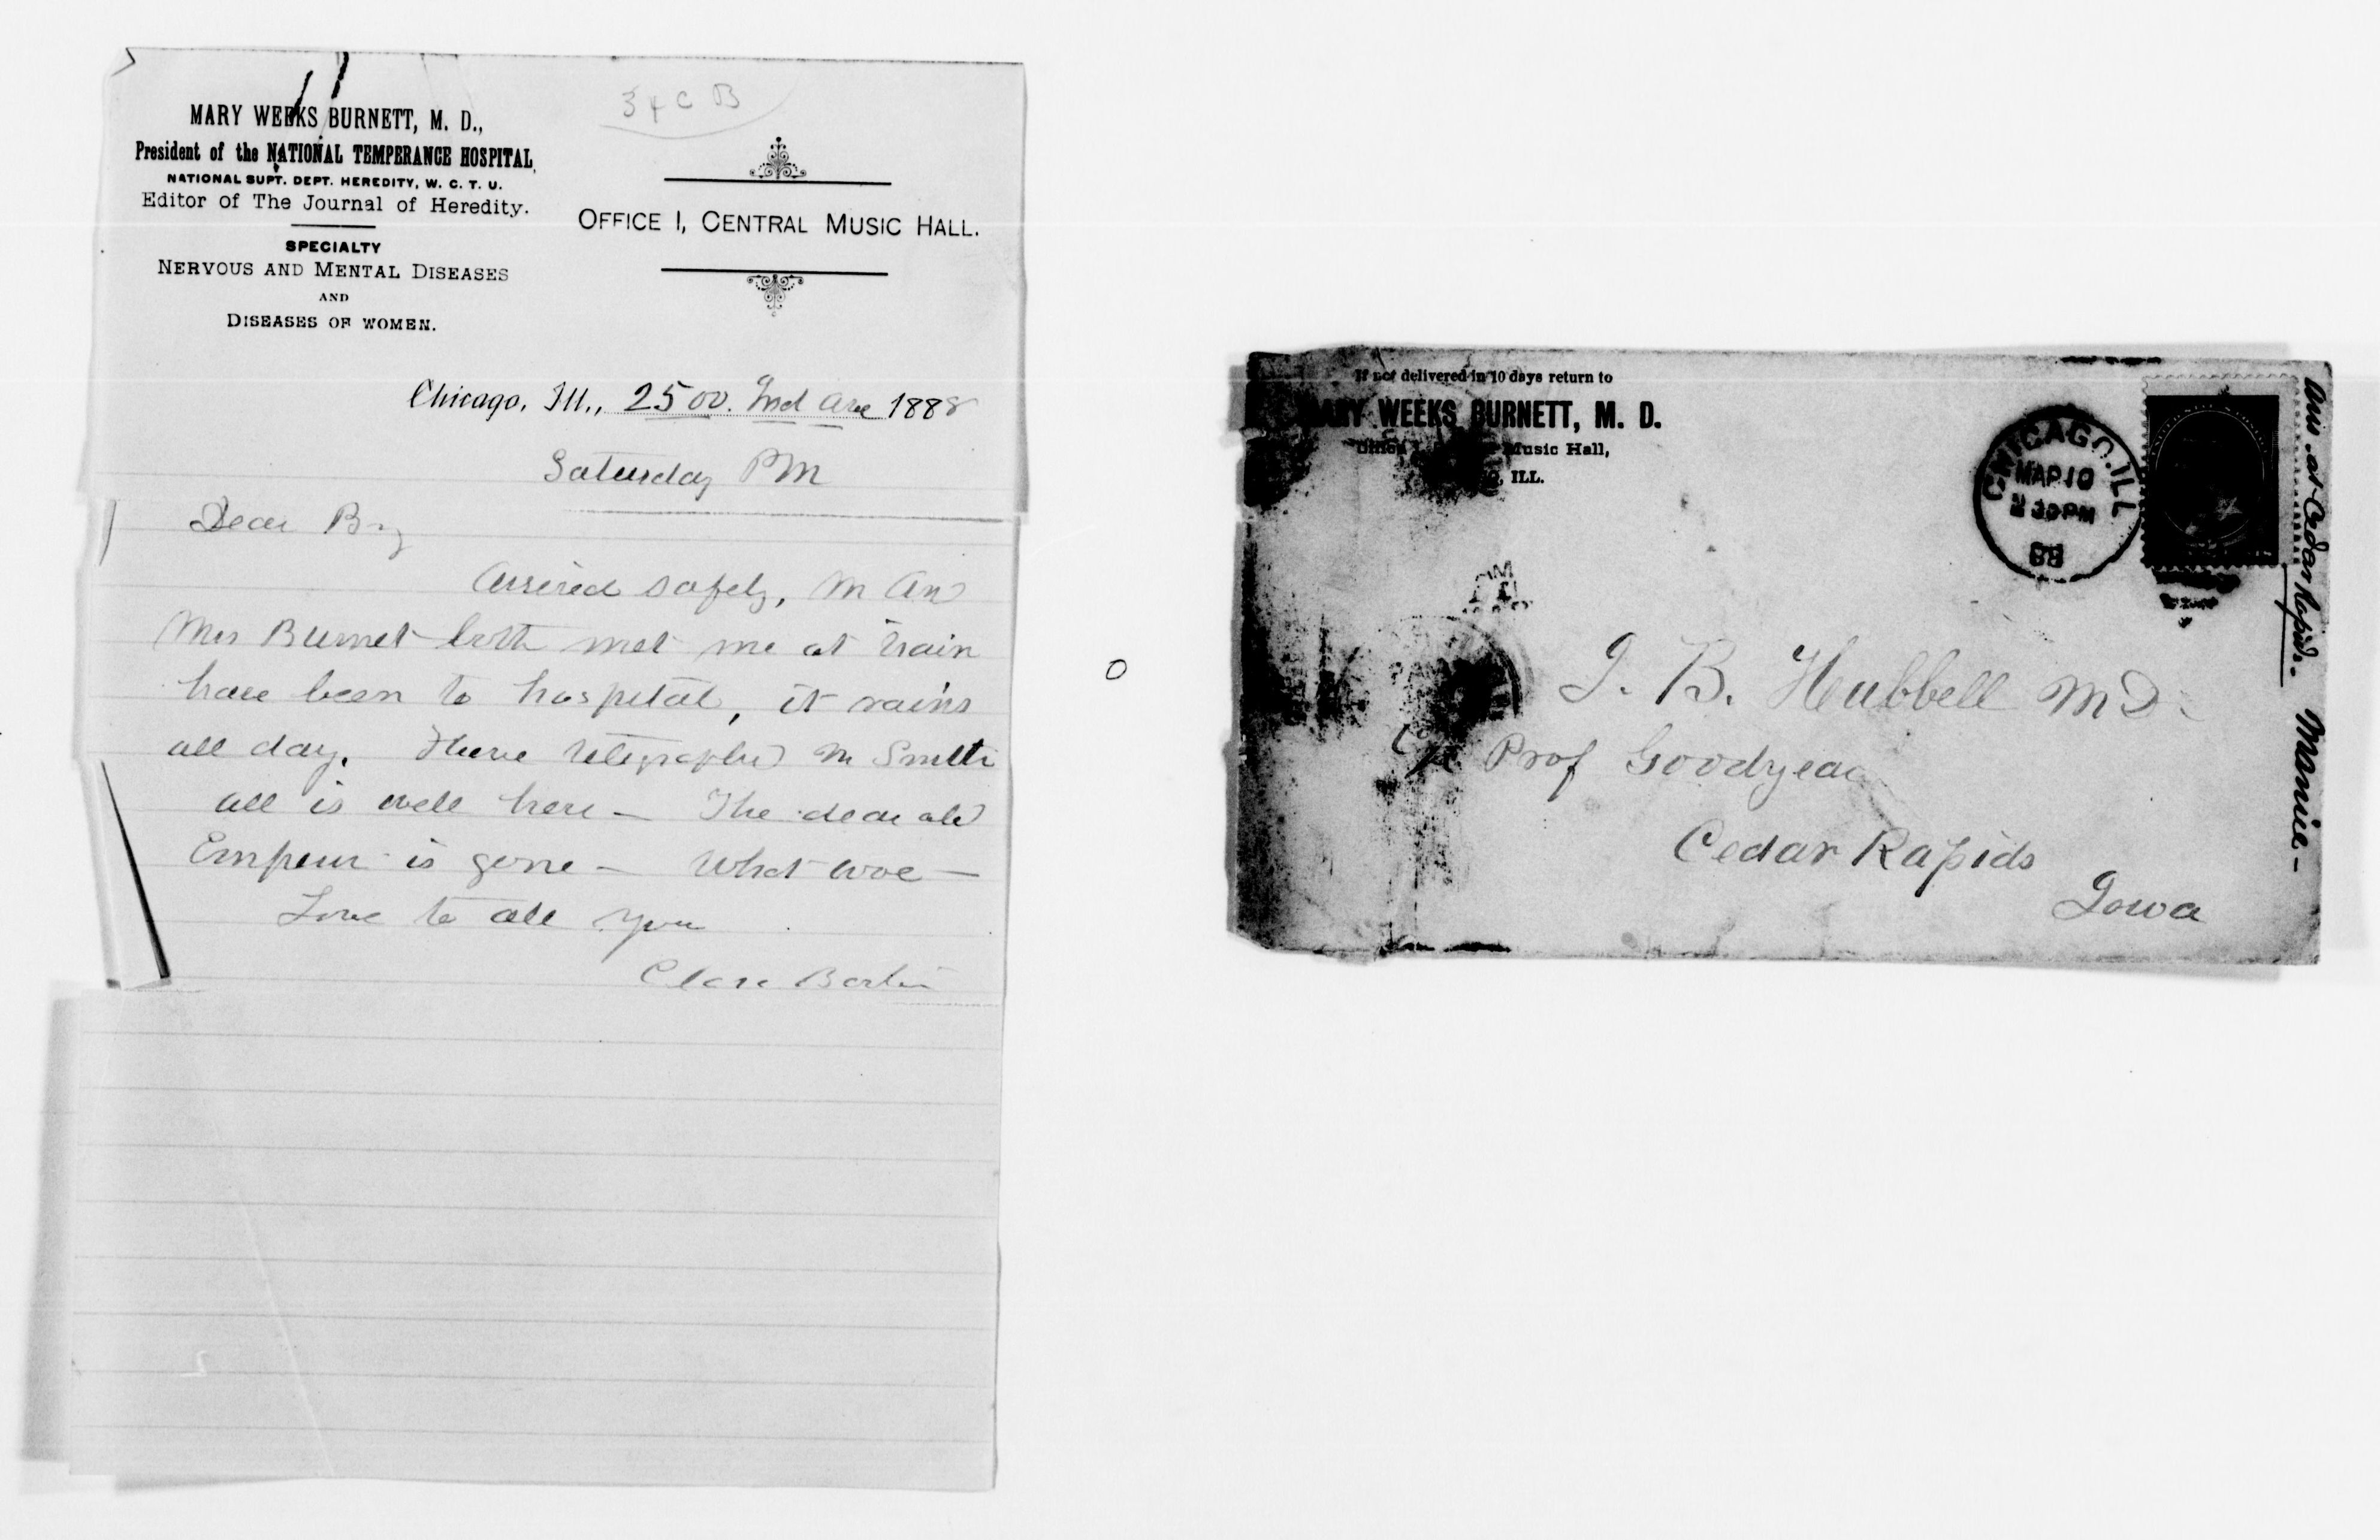 34 C B
MARY WEEKS BURNETT, M. D.,
President of the NATIONAL TEMPERANCE HOSPITAL,
NATIONAL SUPT. DEPT. HEREDITY, W. C. T. U.
Editor of The Journal of Heredity.
SPECIALTY
NERVOUS AND MENTAL DISEASES
AND
DISEASES OF WOMEN.
OFFICE 1, CENTRAL MUSIC HALL.
Chicago, Ill., 2500. Ind Ave 1888
Saturday PM
Dear Boy
Arrived safely, Mr And
Mrs Burnet both met me at train
have been to hospital, it rains
all day. I have telegraphed Mr Smith
all is well here – The dear old
Emperor is gone – What woe –
Love to all you
Clara Barton
If not delivered in 10 days return to
MARY WEEKS BURNETT, M. D.
Office Music Hall,
ILL.
CHICAGO. ILL
MAR 10
2 30 PM
88
J. B. Hubbell M D.
Prof Goodyear
Cedar Rapids
Iowa
Ans. at Cedar Rapids.